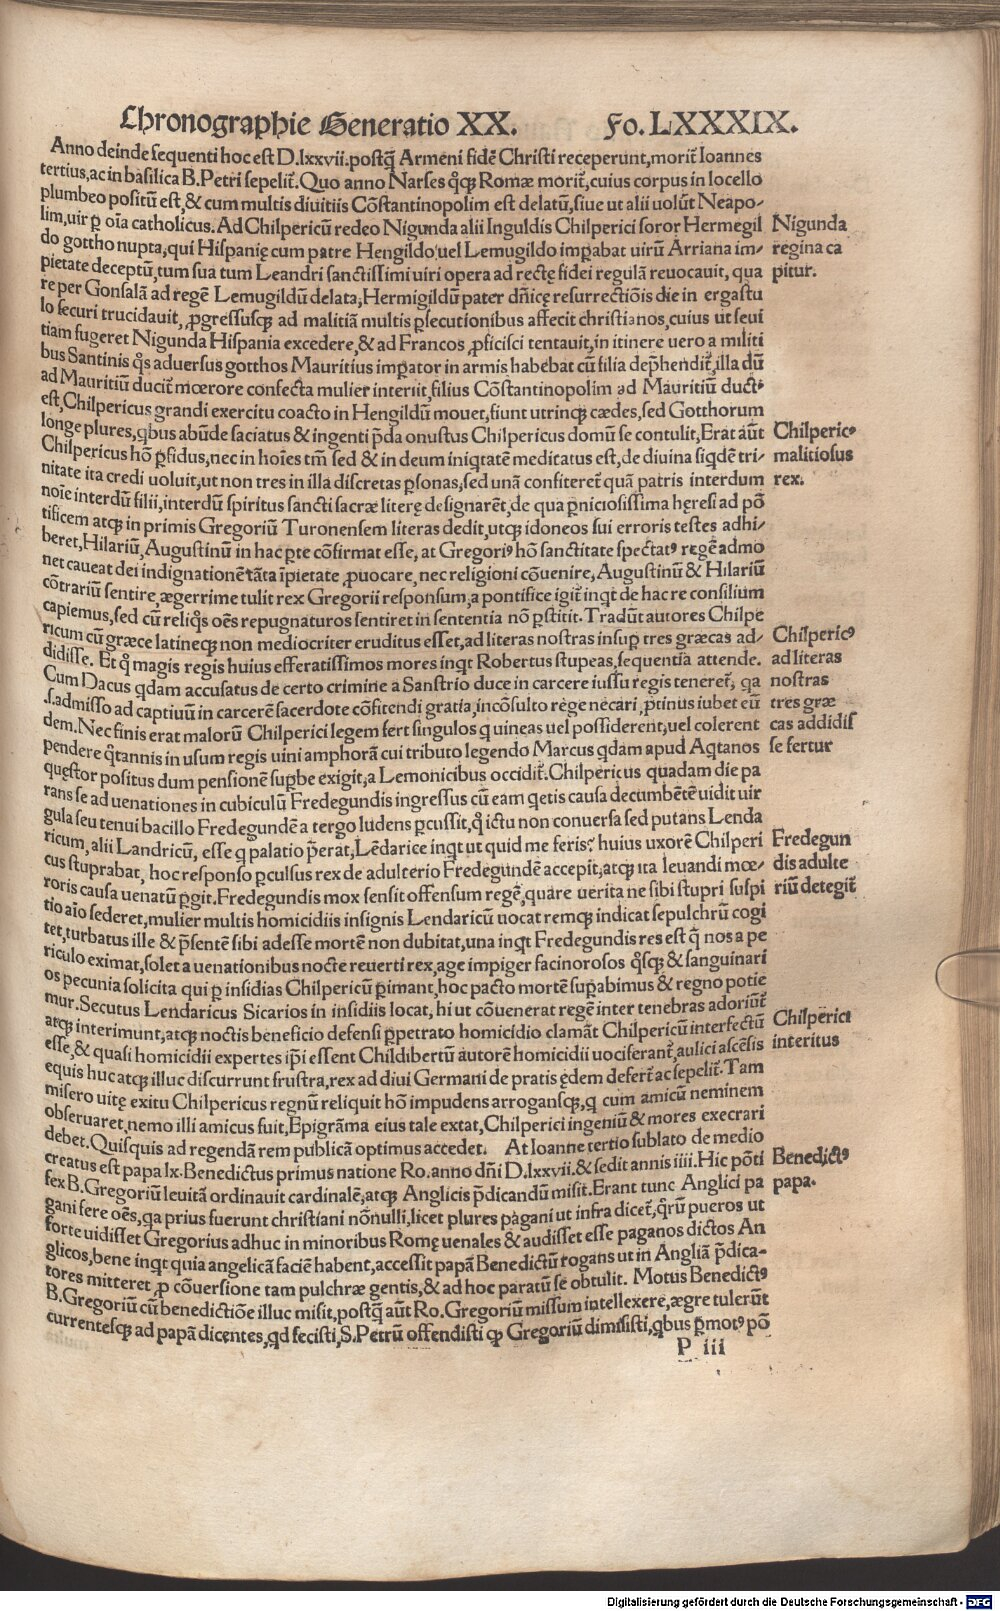 Chronographie Generatio XX. Fo. LXXXIX.
Anno deinde sequenti hoc est D.lxxvii. postq̃ Armeni fidẽ Christi receperunt, morit̃ Ioannes
tertius, ac in basilica B. Petri sepelit̃. Quo anno Narses q̃cꝫ Romæ morit̃, cuius corpus in locello
plumbeo positũ est, & cum multis diuitiis Cõstantinopolim est delatũ, siue ut alii uolũt Neapo-
lim, uir ꝑ oĩa catholicus. Ad Chilpericũ redeo Nigunda alii Inguldis Chilperici soror Hermegil
do gottho nupta, qui Hispanię cum patre Hengildo uel Lemugildo imꝑabat uirũ Arriana im-
pietate deceptũ, tum sua tum Leandri sanctissimi uiri opera ad rectę fidei regulã reuocauit, qua
re per Gonsalã ad regẽ Lemugildũ delata, Hermigildũ pater dñicę resurrectiõis die in ergastu
lo securi trucidauit, ꝓgressusqꝫ ad malitiã multis ꝑsecutionibus affecit christianos, cuius ut seui
tiam fugeret Nigunda Hispania excedere, & ad Francos ꝓficisci tentauit, in itinere uero a militi
bus Santinis q̃s aduersus gotthos Mauritius imꝑator in armis habebat cũ filia dep̃hendit̃, illa dũ
ad Mauritiũ ducit̃ mœrore confecta mulier interiit, filius Cõstantinopolim ad Mauritiũ ductꝰ
est, Chilpericus grandi exercitu coacto in Hengildũ mouet, fiunt utrinqꝫ cædes, sed Gotthorum
longe plures, qbus abũde saciatus & ingenti p̃da onustus Chilpericus domũ se contulit, Erat aũt
Chilpericus hõ ꝑfidus, nec in hoĩes tm̃ sed & in deum iniqtatẽ meditatus est, de diuina siqdẽ tri-
nitate ita credi uoluit, ut non tres in illa discretas ꝑsonas, sed unã confiteret̃ quã patris interdum
noĩe interdũ filii, interdũ spiritus sancti sacræ literę designarẽt, de qua ꝑniciosissima hęresi ad põ
tificem atqꝫ in primis Gregoriũ Turonensem literas dedit, utqꝫ idoneos sui erroris testes adhi-
beret, Hilariũ, Augustinũ in hac ꝑte cõfirmat esse, at Gregoriꝰ hõ sanctitate spectatꝰ regẽ admo
net caueat dei indignationẽ tãta ĩpietate ꝓuocare, nec religioni cõuenire, Augustinũ & Hilariũ
cõtrariũ sentire, ægerrime tulit rex Gregorii responsum, a pontifice igit̃ inqt de hac re consilium
capiemus, sed cũ reliq̃s oẽs repugnaturos sentiret in sententia nõ ꝑstitit. Tradũt autores Chilpe
ricum cũ græce latineqꝫ non mediocriter eruditus esset, ad literas nostras insuꝑ tres græcas ad-
didisse. Et q̃ magis regis huius efferatissimos mores inqt Robertus stupeas, sequentia attende.
Cum Dacus qdam accusatus de certo crimine a Sanstrio duce in carcere iussu regis teneret̃, qa
.s. admisso ad captiuũ in carcerẽ sacerdote cõfitendi gratia, incõsulto rege necari, ꝓtinus iubet eũ
dem. Nec finis erat malorũ Chilperici legem fert singulos q uineas uel possiderent, uel colerent
pendere q̃tannis in usum regis uini amphorã cui tributo legendo Marcus qdam apud Aqtanos
quęstor positus dum pensionẽ suꝑbe exigit, a Lemonicibus occidit̃. Chilpericus quadam die pa
rans se ad uenationes in cubiculũ Fredegundis ingressus cũ eam qetis causa decumbẽtẽ uidit uir
gula seu tenui bacillo Fredegundẽ a tergo ludens ꝑcussit, q̃ ictu non conuersa sed putans Lenda
ricum, alii Landricũ, esse q palatio p̃erat, Lẽdarice inqt ut quid me feris? huius uxorẽ Chilperi
cus stuprabat, hoc responso ꝑculsus rex de adulterio Fredegundẽ accepit, atqꝫ ita leuandi mœ-
roris causa uenatũ ꝑgit. Fredegundis mox sensit offensum regẽ, quare uerita ne sibi stupri suspi
tio aĩo sederet, mulier multis homicidiis insignis Lendaricũ uocat remqꝫ indicat sepulchrũ cogi
tet, turbatus ille & p̃sentẽ sibi adesse mortẽ non dubitat, una inqt Fredegundis res est q̃ nos a pe
riculo eximat, solet a uenationibus nocte reuerti rex, age impiger facinorosos q̃sqꝫ & sanguinari
os pecunia solicita qui ꝑ insidias Chilpericũ ꝑimant, hoc pacto mortẽ suꝑabimus & regno potie
mur. Secutus Lendaricus Sicarios in insidiis locat, hi ut cõuenerat regẽ inter tenebras adoriũt̃
atqꝫ interimunt, atqꝫ noctis beneficio defensi ꝑpetrato homicidio clamãt Chilpericũ interfectũ
esse, & quasi homicidii expertes ip̃i essent Childibertũ autorẽ homicidii uociferant̃, aulici ascẽsis
equis huc atqꝫ illuc discurrunt frustra, rex ad diui Germani de pratis ędem defert̃ ac sepelit̃. Tam
misero uitę exitu Chilpericus regnũ reliquit hõ impudens arrogansqꝫ, q cum amicũ neminem
obseruaret, nemo illi amicus fuit, Epigrãma eius tale extat, Chilperici ingeniũ & mores execrari
debet. Quisquis ad regendã rem publicã optimus accedet. At Ioanne tertio sublato de medio
creatus est papa lx. Benedictus primus natione Ro. anno dñi D.lxxvii. & sedit annis iiii. Hic põti
fex B. Gregoriũ leuitã ordinauit cardinalẽ, atqꝫ Anglicis p̃dicandũ misit. Erant tunc Anglici pa
gani fere oẽs, qa prius fuerunt christiani nõnulli, licet plures pagani ut infra dicet̃, q̃rũ pueros ut
forte uidisset Gregorius adhuc in minoribus Romę uenales & audisset esse paganos dictos An
glicos, bene inqt quia angelicã faciẽ habent, accessit papã Benedictũ rogans ut in Angliã p̃dica-
tores mitteret ꝓ cõuersione tam pulchræ gentis, & ad hoc paratũ se obtulit. Motus Benedictꝰ
B. Gregoriũ cũ benedictiõe illuc misit, postq̃ aũt Ro. Gregoriũ missum intellexere, ægre tulerũt
currentesqꝫ ad papã dicentes, qd fecisti, S. Petrũ offendisti qꝫ Gregoriũ dimisisti, qbus ꝑmotꝰ põ
P iii
Nigunda
regina ca
pitur.
Chilpericꝰ
malitiosus
rex.
Chilpericꝰ
ad literas
nostras
tres græ
cas addidis
se fertur
Fredegun
dis adulte
riũ detegit̃
Chilperici
interitus
Benedictꝰ
papa.
Digitalisierung gefördert durch die Deutsche Forschungsgemeinschaft - DFG